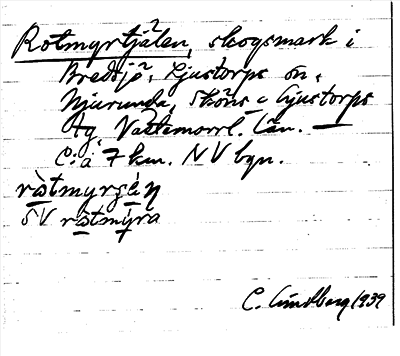 Rotmyrtjålen, skogsmark i
Bredsjö, Ljustorps sn,
Njurunda, Sköns o Ljustorps
tg, Västernorrl. län. —
C:a 7 km. NV byn.
SV ròtmýra
C. Lindberg 1939